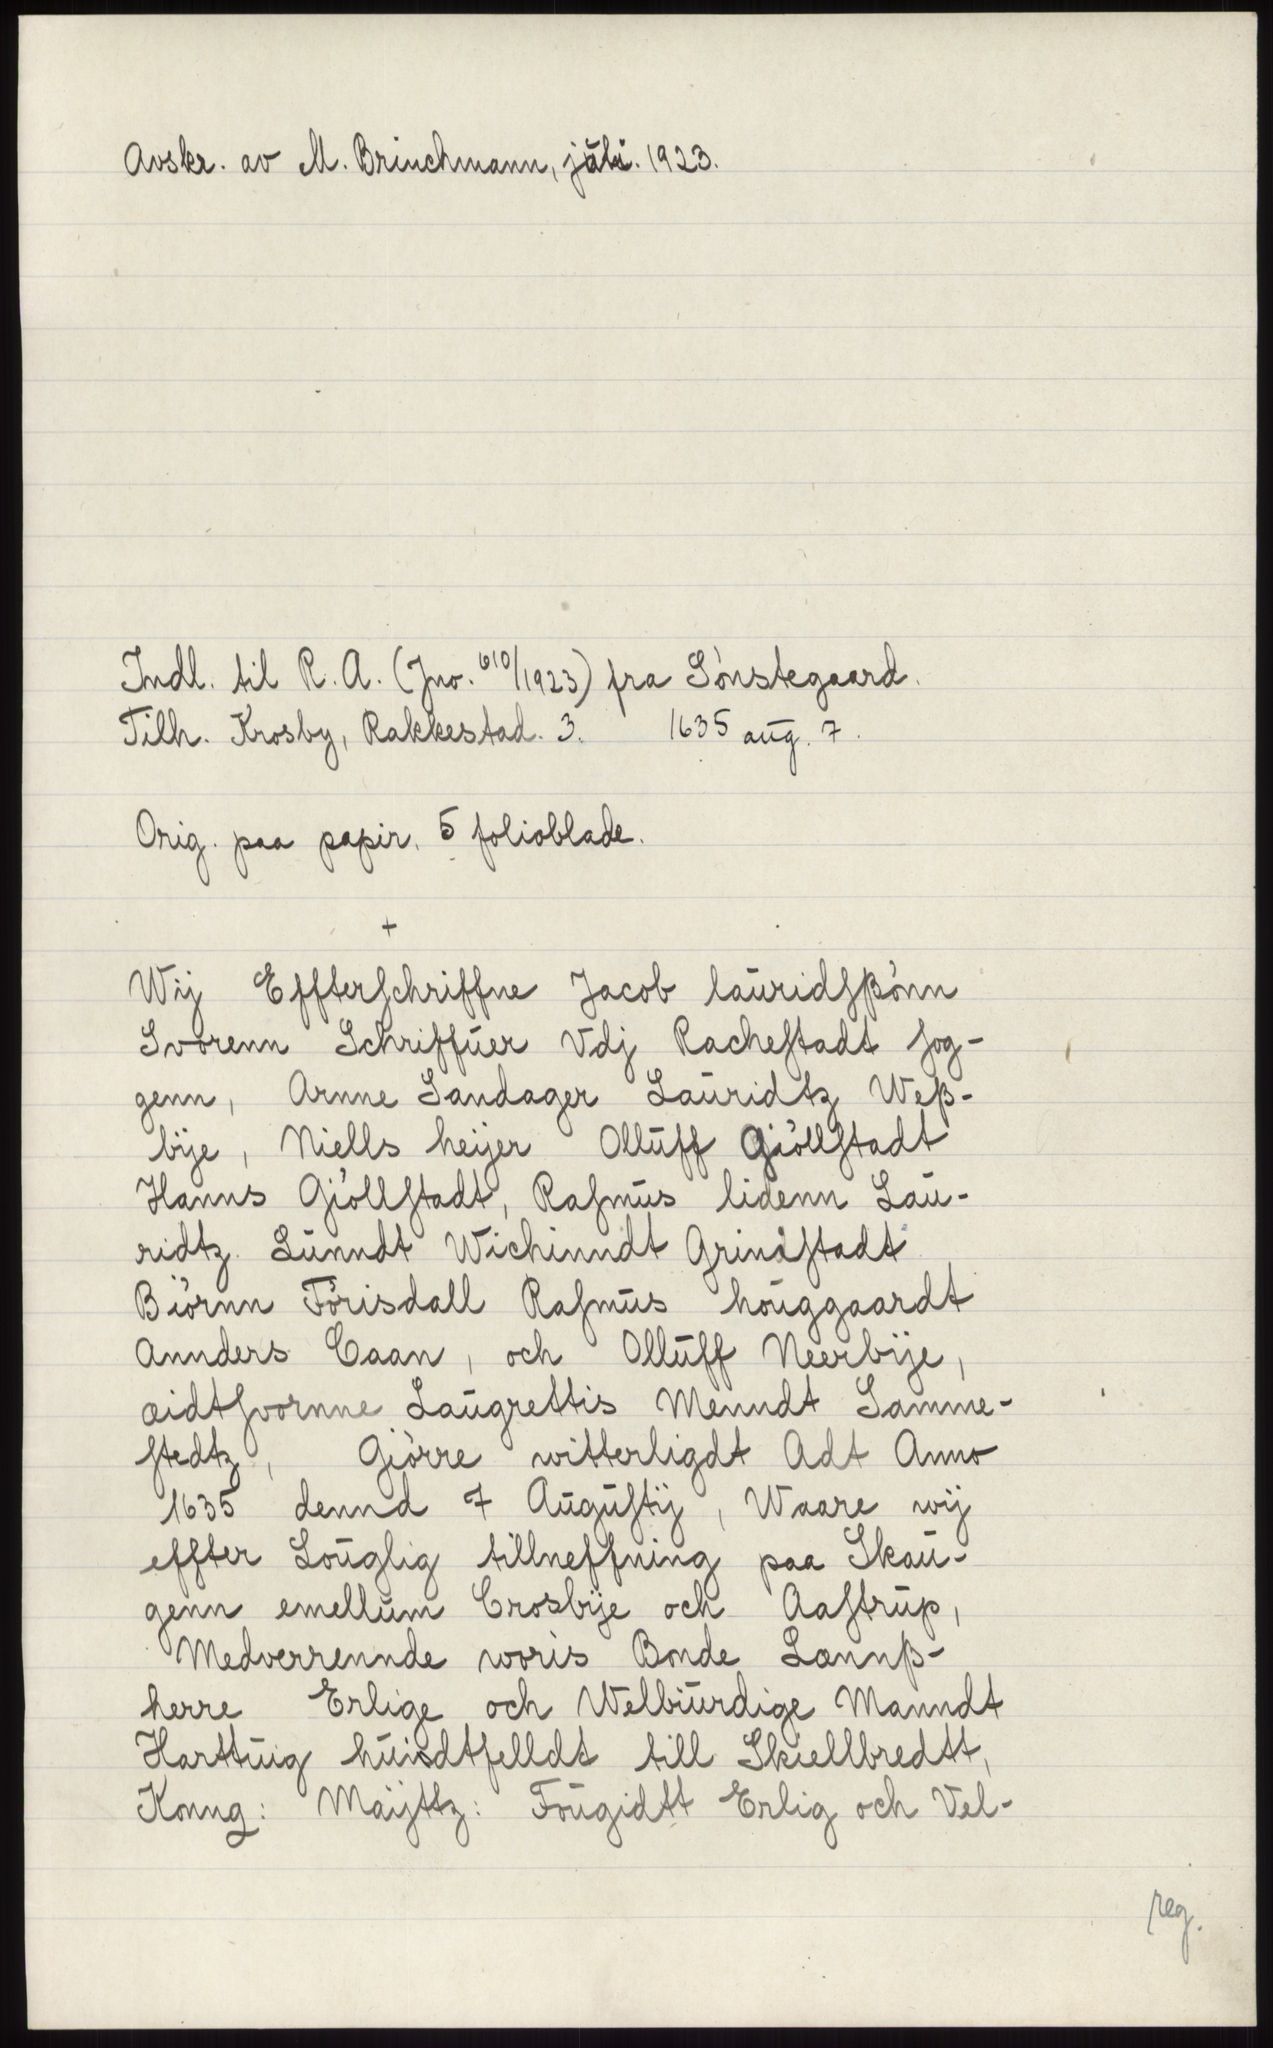 Avskr. av M. Brinchmann, juli. 1923.
Indl. til R. A. (Jno. 610/1923) fra Sönstegaard.
Tilh. Krosby, Rakkestad. 3. 1635 aug. 7.
Orig. paa papir. 5 folioblade.
+
Wij Effterſchriffne Jacob lauridſßönn
Svorenn Schriffuer Vdj Racheſtadt ſog-
genn, Arnne Sandager Lauridtz Weß-
bije, Niells heijer Olluff Giöllſtadt
Hanns Giöllſtadt, Raſmus lidenn Lau-
ridtz Lunndt Wichinndt Grinſtadt
Biörnn Förisdall Raſmus houggaardt
Annders Caan, och Olluff Neerbije,
æidtſvornne Laugrettis Menndt Samme-
ſtedtz, Giörre witterligdt Adt Anno
1635 dennd 7 Auguſtij, Waare wij
effter Louglig tillneffning paa Skau-
genn emellum Crosbije och Aaſtrup,
Medverrennde woris Bonde Lænnß-
herre Erlige och Welbiurdige Manndt
Harttuig huisdtfelldt till Skiellbredtt,
Konng: Maijttz: Fougidtt Erlig och Vel-
reg.